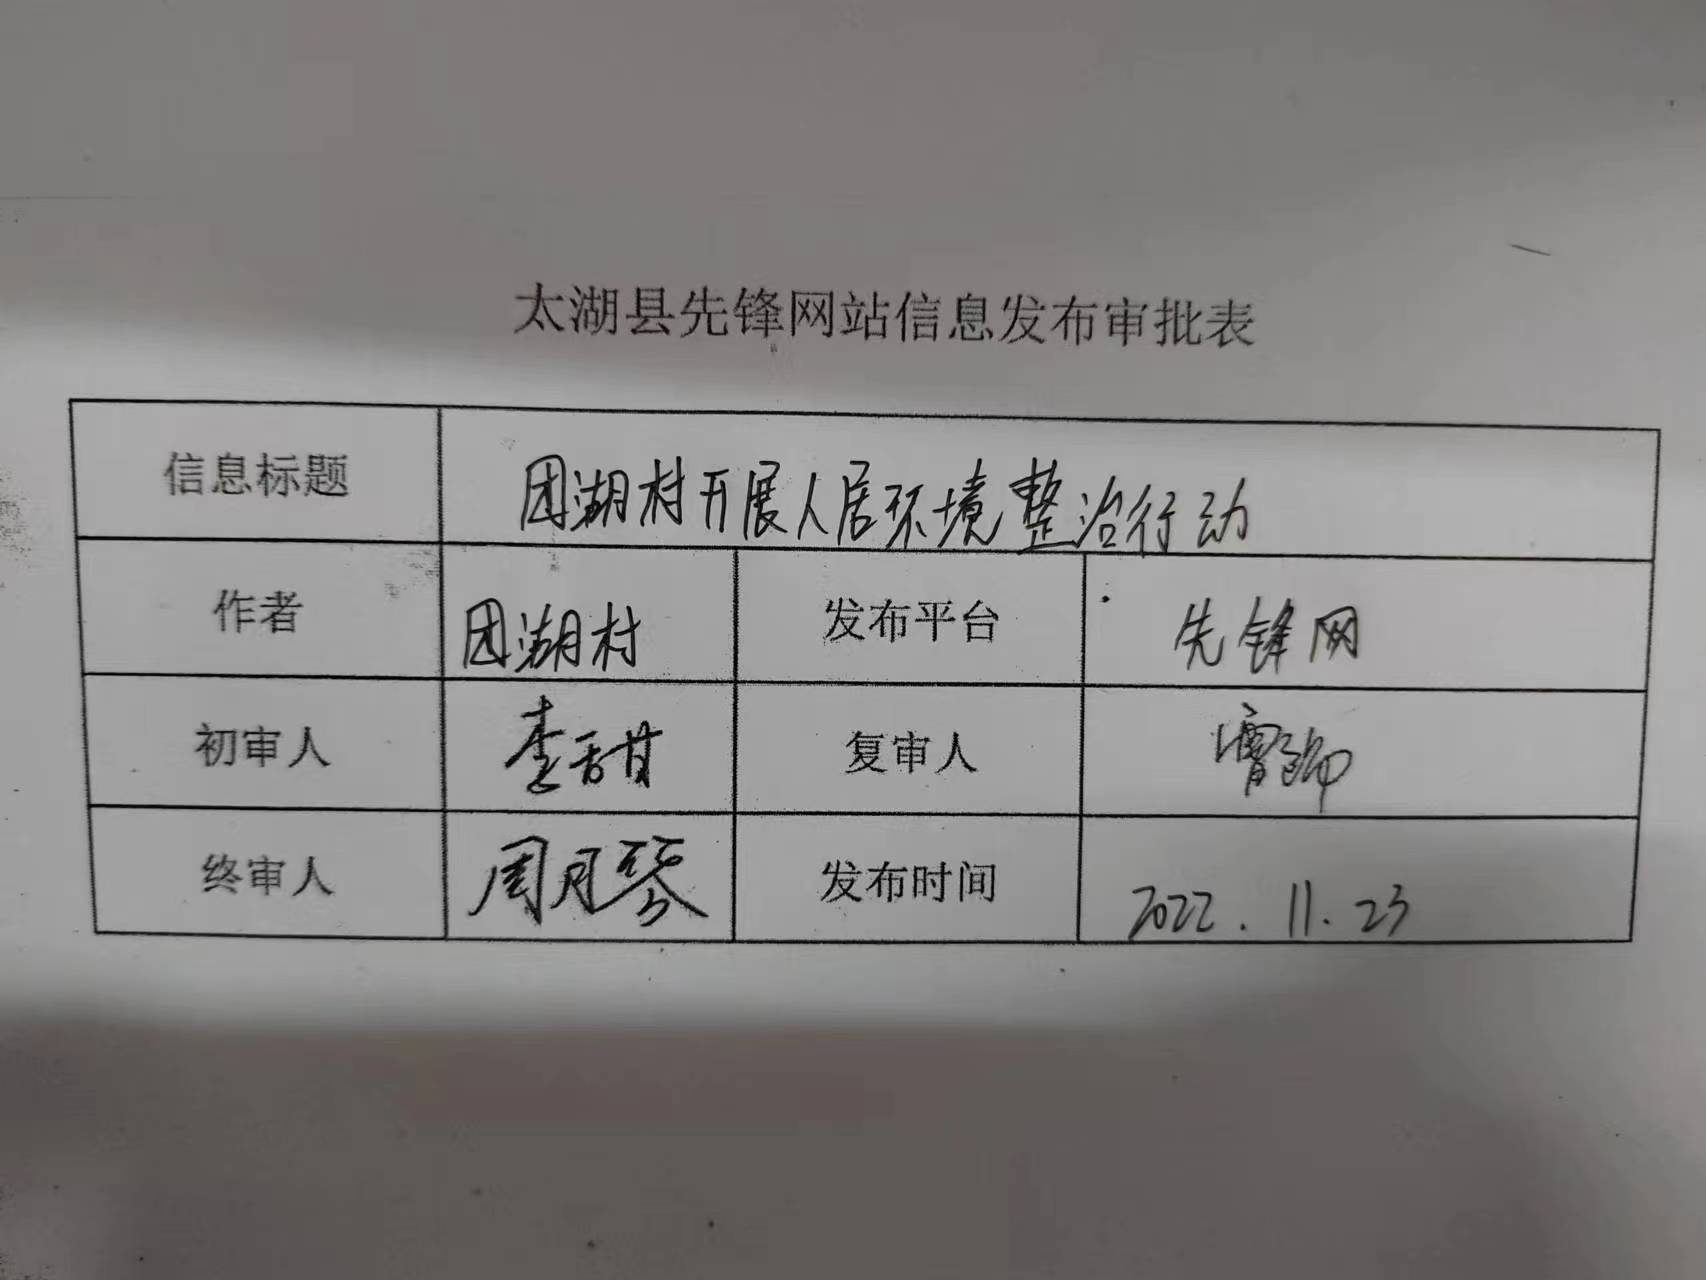 太湖县先锋网站信息发布审批表
信息标题 团湖村开展人居环境整治行动
作者 团湖村 发布平台 先锋网
初审人 李甜 复审人
终审人 周月琴 发布时间 2022.11.23